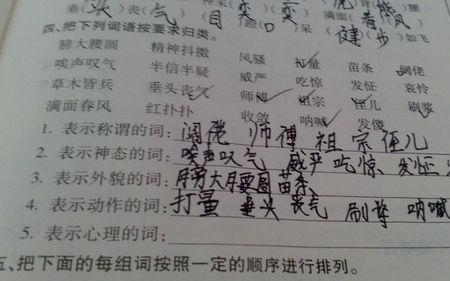 垂(头)丧(气) 目 口 满面(春风)
健(步)如飞
四、把下列词语按要求归类。
膀大腰圆 精神抖擞 风骚 打量 苗条 阔佬
唉声叹气 半信半疑 威严 吃惊 发怔 哀怜
草木皆兵 垂头丧气 师傅 祖宗 侄儿 刷浆
满面春风 红扑扑 收敛 呐喊 发傻
1. 表示称谓的词：阔佬 师傅 祖宗 侄儿
2. 表示神态的词：唉声叹气 威严 吃惊 发怔
3. 表示外貌的词：膀大腰圆 苗条
4. 表示动作的词：打量 垂头丧气 刷浆 呐喊
5. 表示心理的词：
五、把下面的每组词按照一定的顺序进行排列。